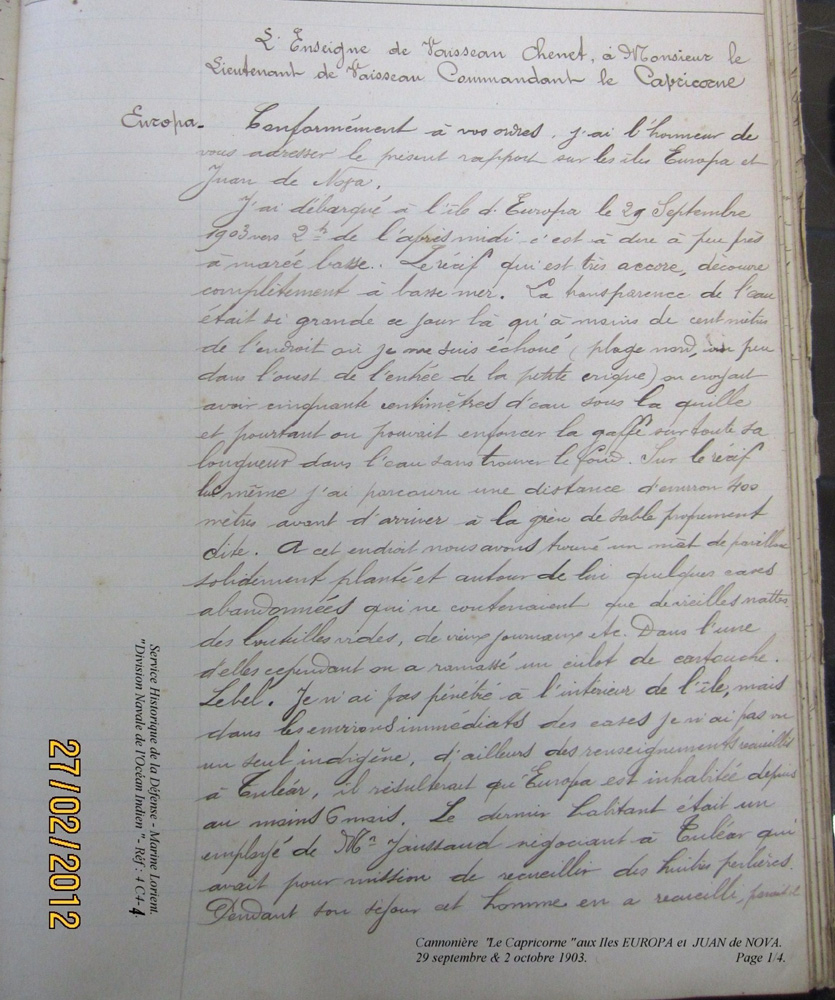 L'Enseigne de Vaisseau Chenet, à Monsieur le
Lieutenant de Vaisseau Commandant le Capricorne
Europa. Conformément à vos ordres, j'ai l'honneur de
vous adresser le présent rapport sur les îles Europa et
Juan de Nova.
J'ai débarqué à l'île d'Europa le 29 Septembre
1903 vers 2h de l'après midi c'est à dire à peu près
à marée basse. Le récif qui est très accore, découvre
complètement à basse mer. La transparence de l'eau
était si grande ce jour là qu'à moins de cent mètres
de l'endroit où je me suis échoué (plage nord, un peu
dans l'ouest de l'entrée de la petite crique) on croyait
avoir cinquante centimètres d'eau sous la quille
et pourtant on pouvait enfoncer la gaffe sur toute sa
longueur dans l'eau sans trouver le fond. Sur le récif
lui même j'ai parcouru une distance d'environ 400
mètres avant d'arriver à la grève de sable proprement
dite. A cet endroit nous avons trouvé un mât de pavillon
solidement planté et autour de lui quelques cases
abandonnées qui ne contenaient que de vieilles nattes,
des bouteilles vides, de vieux journaux etc. Dans l'une
d'elles cependant on a ramassé un culot de cartouche.
Lebel. Je n'ai pas pénétré à l'intérieur de l'île, mais
dans les environs immédiats des cases je n'ai pas vu
un seul indigène, d'ailleurs des renseignements recueillis
à Tuléar, il résulterait qu'Europa est inhabitée depuis
au moins 6 mois. Le dernier habitant était un
employé de Mr négociant à Tuléar qui
avait pour mission de recueillir des huîtres perlières.
Pendant son séjour cet homme en a recueilli, paraît-il
Service Historique de la Défense - Marine Lorient.
"Division Navale de l'Océan Indien" - Réf : 4 C4-4.
27/02/2012
Cannonière "Le Capricorne" aux Iles EUROPA et JUAN de NOVA.
29 septembre & 2 octobre 1903. Page 1/4.